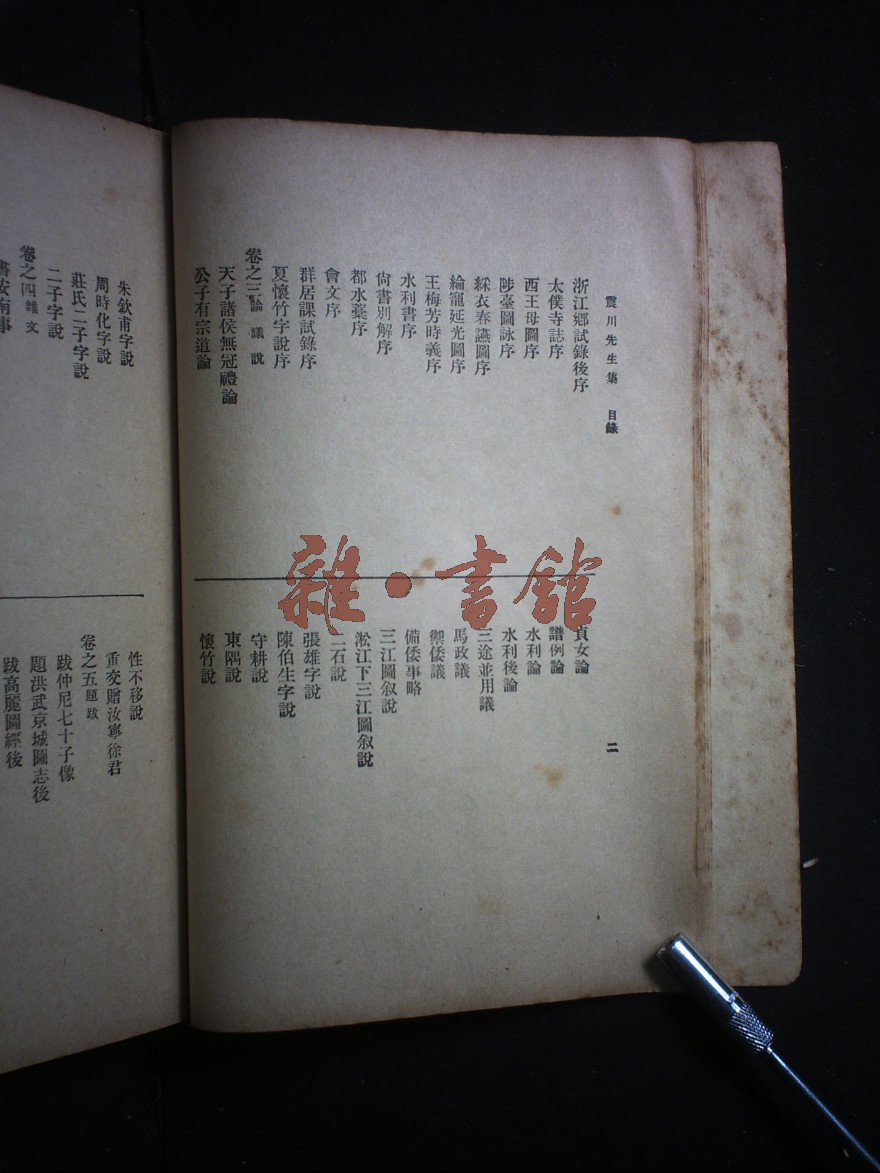 震川先生集 目錄
浙江鄉試錄後序
太僕寺誌序
西王母圖序
陟臺圖詠序
綵衣春讌圖序
綸寵延光圖序
王梅芳時義序
水利書序
尙書別解序
都水藁序
會文序
群居課試錄序
夏懷竹字說序
卷之三 論議說
天子諸侯無冠禮論
公子有宗道論
貞女論
譜例論
水利論
水利後論
三途並用議
馬政議
禦倭議
備倭事略
三江圖叙說
淞江下三江圖叙說
二石說
張雄字說
陳伯生字說
守耕說
東隅說
懷竹說
二
朱欽甫字說
周時化字說
莊氏二子字說
二子字說
卷之四 雜文
書安南事
性不移說
重交贈汝寧徐君
卷之五 題跋
跋仲尼七十子像
題洪武京城圖志後
跋高麗圖經後
雜·書館